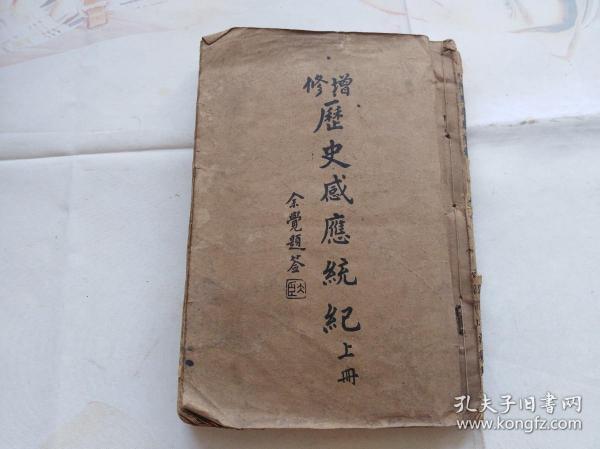 增修
歷史感應統紀上冊
余覺題簽
孔夫子旧书网
www.kongfz.com